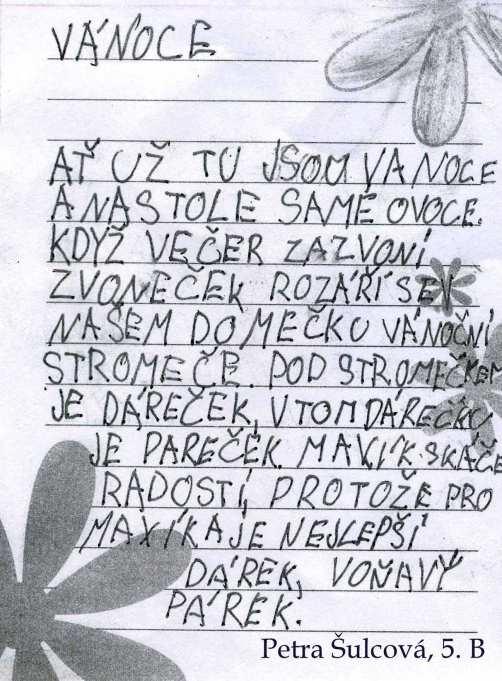 VÁNOCE
AŤ UŽ TU JSOU VÁNOCE
A NA STOLE SAMÉ OVOCE.
KDYŽ VEČER ZAZVONÍ
ZVONEČEK ROZÁŘÍ SE V
NAŠEM DOMEČKU VÁNOČNÍ
STROMEČE. POD STROMEČKEM
JE DÁREČEK, V TOM DÁREČKU
JE PAREČEK. MAXÍK SKÁČE
RADOSTÍ, PROTOŽE PRO
MAXÍKA JE NEJLEPŠÍ
DÁREK, VOŇAVÝ
PÁREK.
Petra Šulcová, 5. B